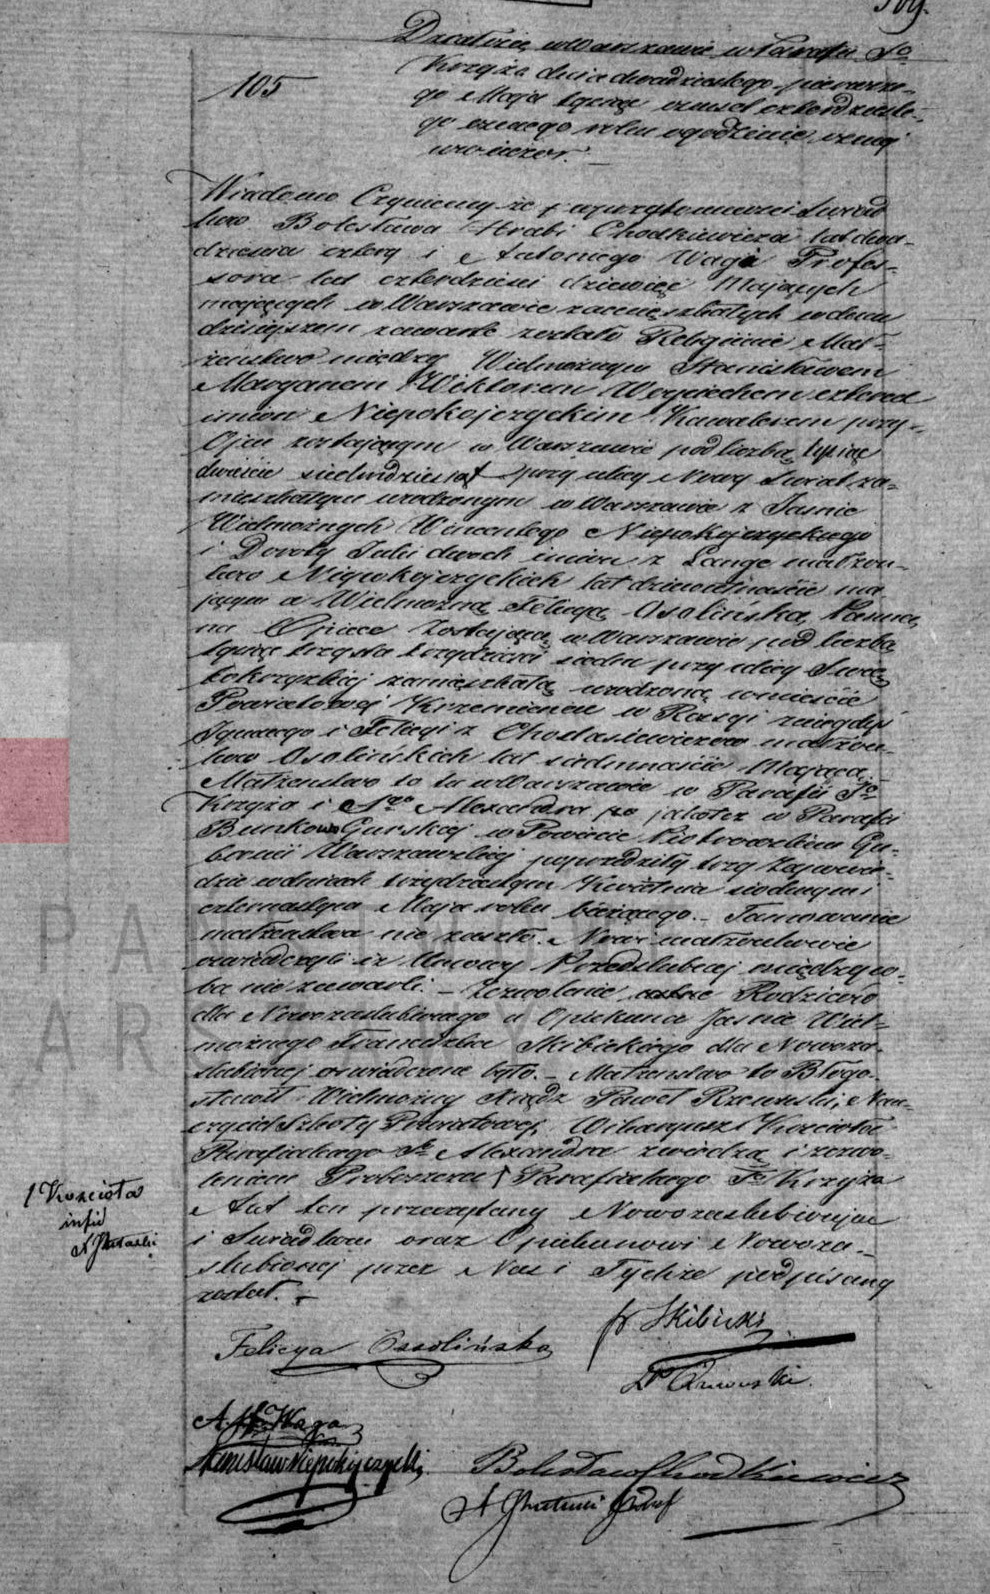 109.
105
Działo się w Warszawie w Parafii Sgo
Krzyża dnia dwudziestego pierwsze-
go Maja tysiąc ośmset czterdzieste-
go ósmego roku o godzinie ósmej
wieczor. _
Wiadomo Czyniemy że w przytomności Świad
ków Bolesława Hrabi Chodkiewicza lat dwa-
dzieścia cztery i Antoniego Wagi Profes-
sora lat czterdzieści dziewięć Mających
mających w Warszawie zamieszkałych w dniu
dzisiejszem zawarte zostało Religijne Mał-
żeństwo między Wielmożnym Stanisławem
Maryanem Wiktorem Woyciechem czterech
imion Niepokojczyckim Kawalerem przy
Ojcu zostającym w Warszawie pod liczbą tysiąc
dwieście siedmdziesiąt przy ulicy Nowy Świat za-
mieszkałym urodzonym w Warszawie z Jaśnie
Wielmożnych Wincentego Niepokojczyckiego
i Doroty Julii dwóch imion z Lange małżon-
ków Niepokojczyckich lat dziewiętnaście ma
jącym a Wielmożną Felicyą Osolińską Panną
na Opiece zostającą w Warszawie pod liczbą
tysiąc trzysta trzydzieści siedm przy ulicy Święto
krzyzkiej zamieszkałą urodzoną w mieście
Powiatowej Krzemieńcu w Rossyi z niegdyś
Ignacego i Felicyi z Chodasiewiczów małżon-
ków Osolińskich lat siedmnaście Mającą.
Małżeństwo to tu w Warszawie w Parafii Sgo
Krzyża i Sgo Alexandra jakoteż w Parafii
Gurskiej w Powiecie Piotrowskim Gu-
bernii Warszawskiej poprzedziły trzy Zapowie-
dzie w dniach trzydziestym Kwietnia siódmym i
czternastym Maja roku bieżącego. _ Tamowanie
małżeństwa nie zaszło. Nowi małżonkowie
oświadczyli iż Umowy Przedślubnej między so-
bą nie zawarli. _ Zezwolenie ustne Rodziców
dla Nowozaślubionego a Opiekuna Jaśnie Wiel-
możnego Franciszka Skibickiego dla Nowoza-
ślubionej oświadczone było. _ Małżeństwo to Błogo-
sławił Wielmożny Xiądz Paweł Rzewuski, Nau-
czyciel Szkoły Powiatowej, Wikaryusz Kościoła
Parafialnego Sgo Alexandra z wiedzą i zezwo-
leniem Proboszcza ſ Parafialnego S Krzyża
Akt ten przeczytany Nowozaślubionym
i Świadkom oraz Opiekunowi Nowoza-
ślubionej przez Nas i Tychże podpisany
został. _
ſ Kościoła
Felicya Ossolińska
fr Skibicki
A. Waga
Stanisław Niepokojczycki
Bolesław Chodkiewicz